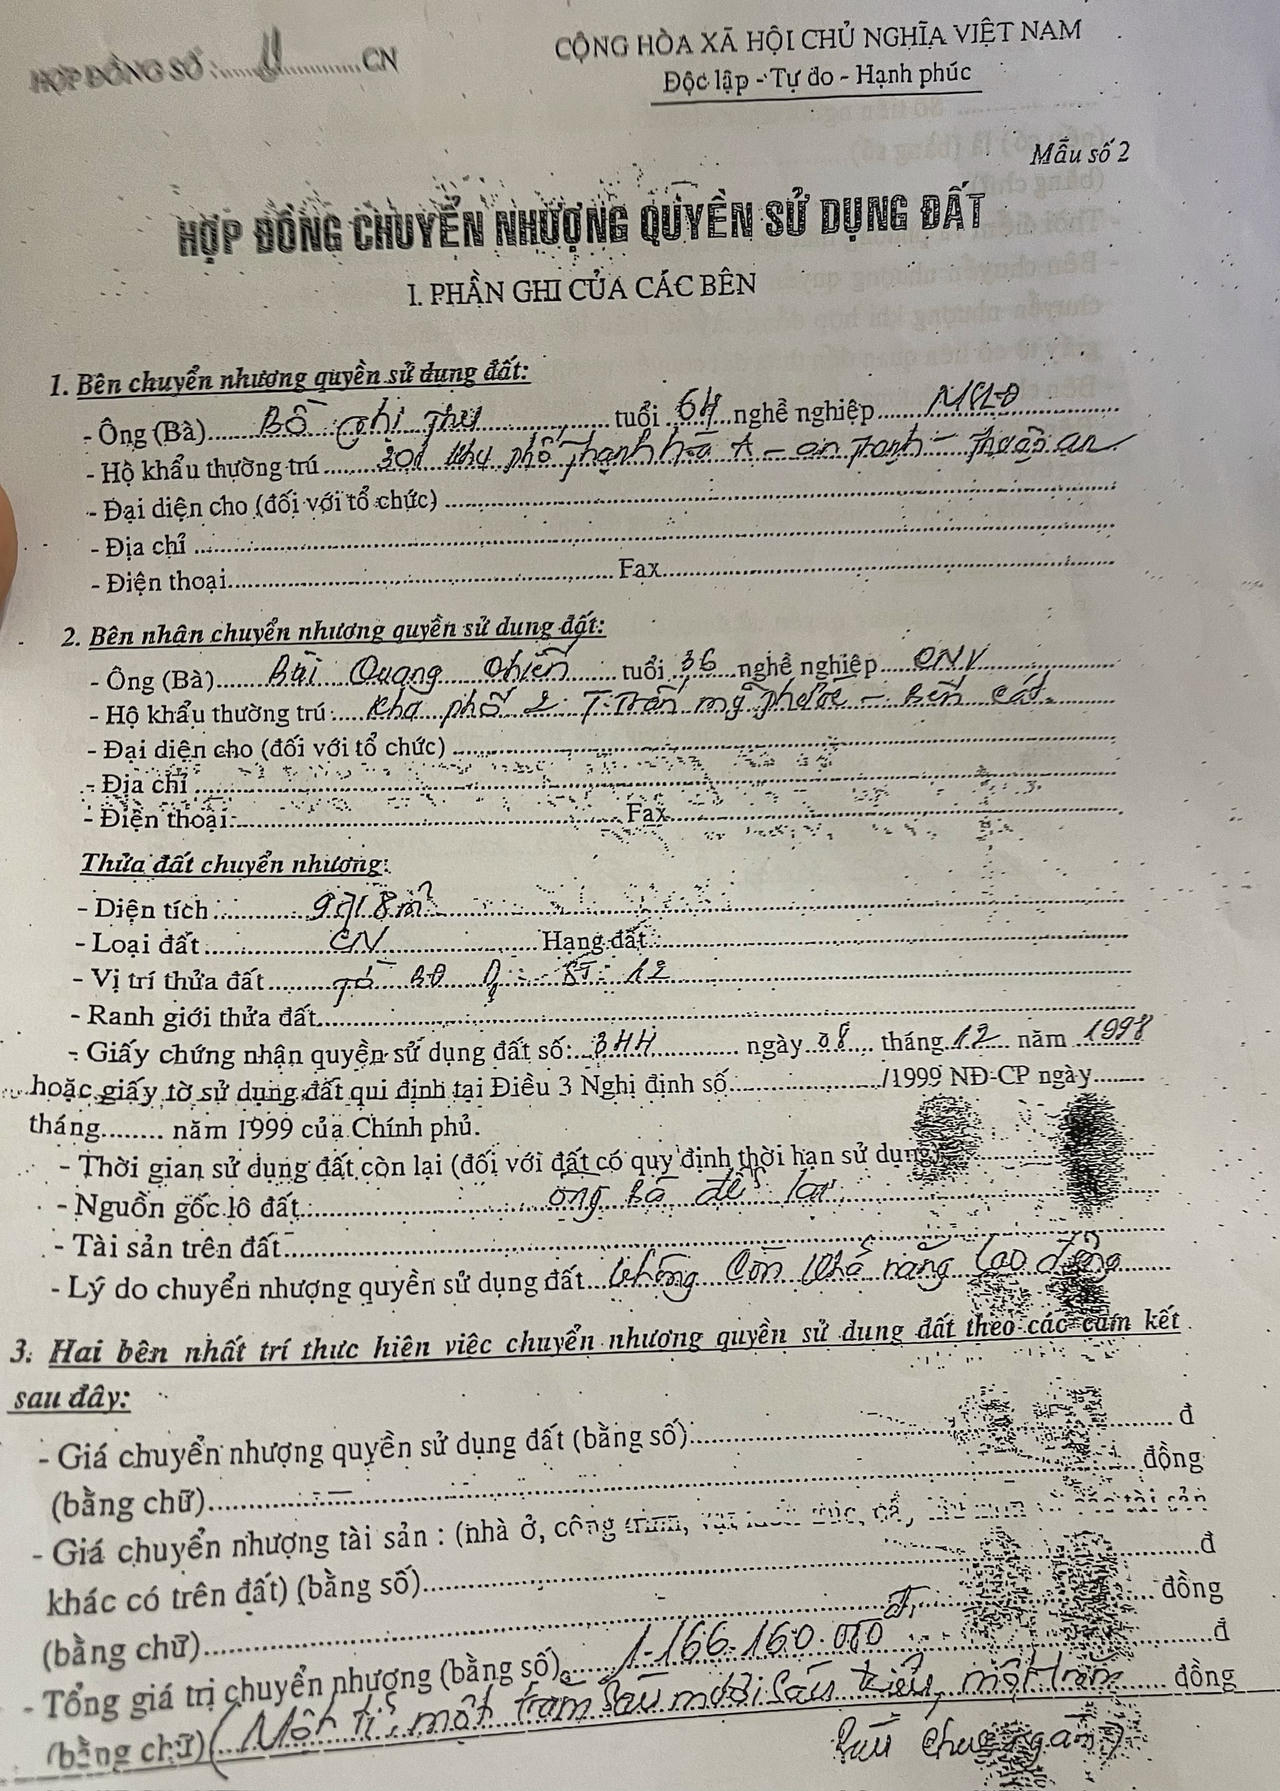 HỢP ĐỒNG SỐ :............CN
CỘNG HÒA XÃ HỘI CHỦ NGHĨA VIỆT NAM
Độc lập - Tự do - Hạnh phúc
Mẫu số 2
HỢP ĐỒNG CHUYỂN NHƯỢNG QUYỀN SỬ DỤNG ĐẤT
I. PHẦN GHI CỦA CÁC BÊN
1. Bên chuyển nhượng quyền sử dụng đất:
- Ông (Bà)..... Thị Thu ..... tuổi 64 nghề nghiệp..... MSLĐ
- Hộ khẩu thường trú ..... khu phố Thạnh hòa A - an Thạnh - Thuận an
- Đại diện cho (đối với tổ chức) .....
- Địa chỉ .....
- Điện thoại..... Fax.....
2. Bên nhận chuyển nhượng quyền sử dụng đất:
- Ông (Bà)..... Bùi Quang Chiến ..... tuổi 36 nghề nghiệp..... CNV
- Hộ khẩu thường trú :..... Khu phố 2 T.Trấn mỹ phước - Bến cát.
- Đại diện cho (đối với tổ chức) .....
- Địa chỉ .....
- Điện thoại:..... Fax.....
Thửa đất chuyển nhượng:
- Diện tích .....
- Loại đất ..... CN ..... Hạng đất :.....
- Vị trí thửa đất ..... tờ BĐ ..... 12
- Ranh giới thửa đất.....
- Giấy chứng nhận quyền sử dụng đất số:..... ngày 08 tháng 12 năm 1998
hoặc giấy tờ sử dụng đất qui định tại Điều 3 Nghị định số...../1999 NĐ-CP ngày.....
tháng........ năm 1999 của Chính phủ.
- Thời gian sử dụng đất còn lại (đối với đất có quy định thời hạn sử dụng).....
- Nguồn gốc lô đất..... ông bà để lại
- Tài sản trên đất.....
- Lý do chuyển nhượng quyền sử dụng đất... không còn khả năng lao động
3. Hai bên nhất trí thực hiện việc chuyển nhượng quyền sử dụng đất theo các cam kết
sau đây:
- Giá chuyển nhượng quyền sử dụng đất (bằng số)..... đ
(bằng chữ)..... đồng
- Giá chuyển nhượng tài sản : (nhà ở, công trình, vật kiến trúc, cây lâu năm và các tài sản
khác có trên đất) (bằng số).....đ
(bằng chữ)..... đồng
- Tổng giá trị chuyển nhượng (bằng số)..... 1.166.160.000 đ .....đ
(bằng chữ) (Một tỉ, một trăm sáu mươi sáu triệu, một trăm ..... đồng
sáu chục ngàn)